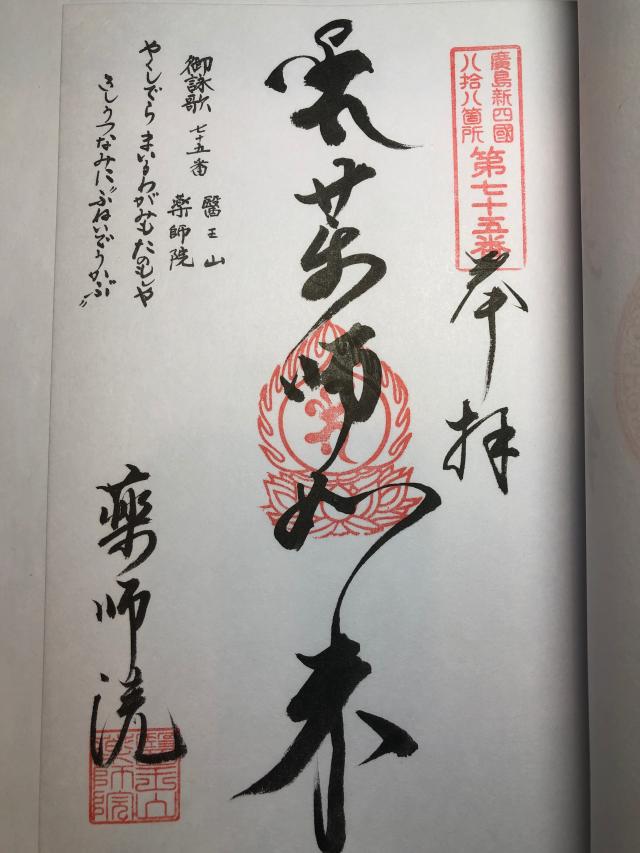 廣島新四國
八拾八箇所
第七十五番
奉拝
薬師如来
御詠歌 七十五番 醫王山
薬師院
やくしでら まいるわがみも たのもしや
きしうつなみに ふねいどうかぶ
薬師院
醫王山
薬師院